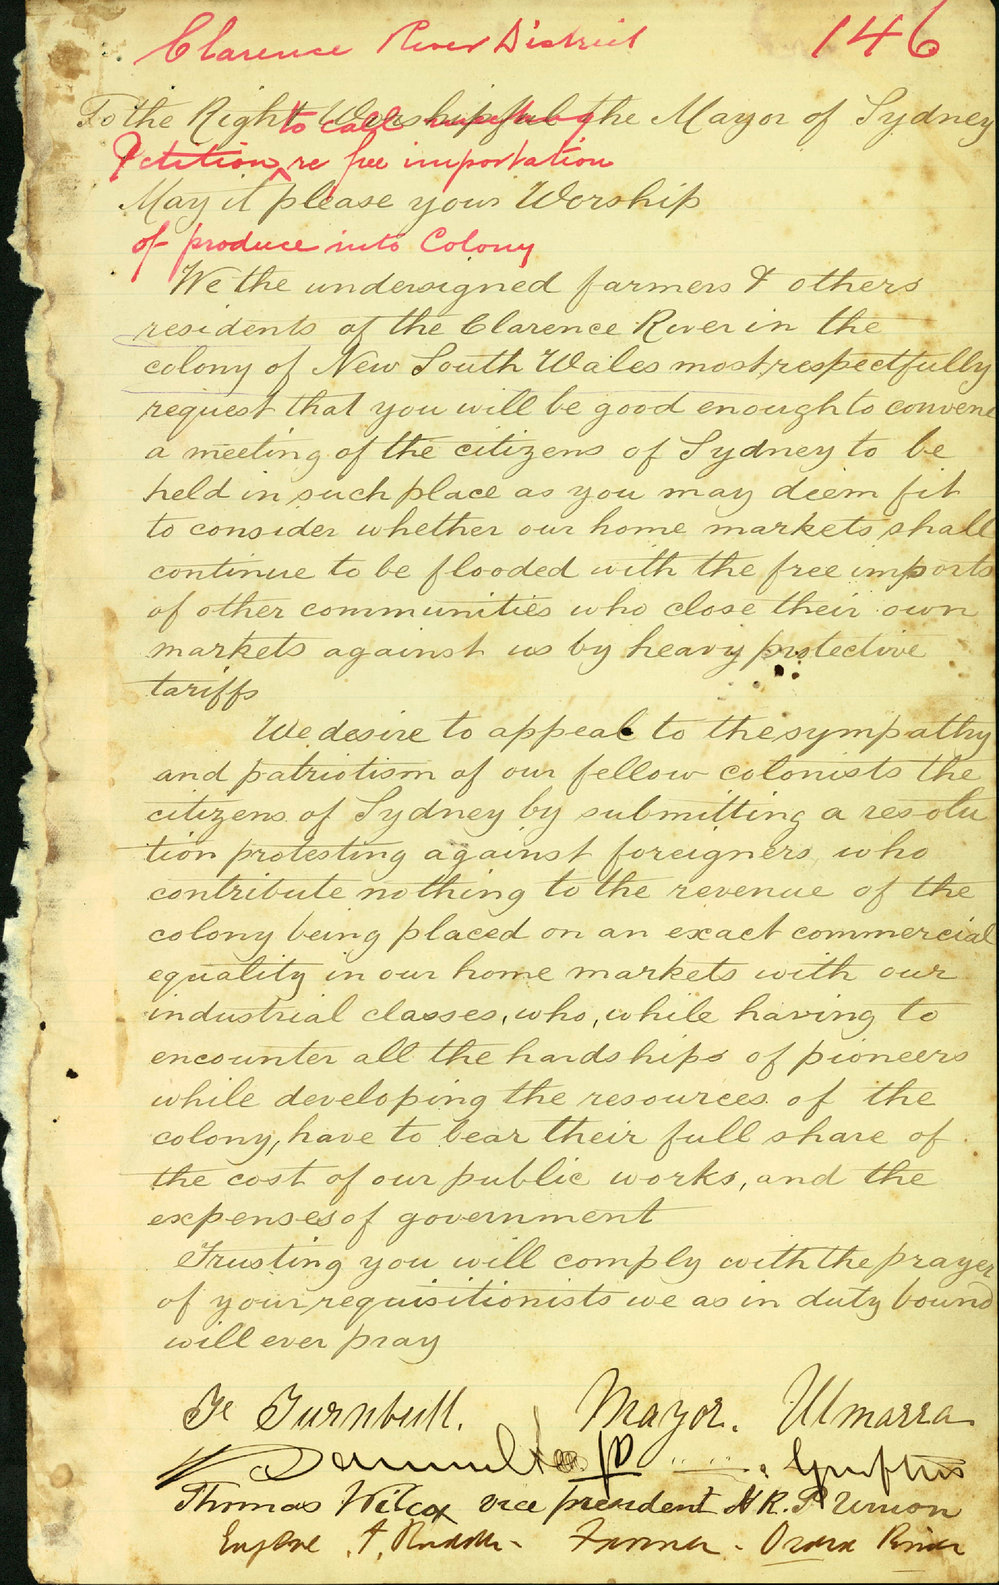 Clarence River District
146
To the Right Worshipful the Mayor of Sydney
Petition to call meeting re free importation
May it please your Worship
of produce into Colony
We the undersigned farmers & others
residents of the Clarence River in the
colony of New South Wales most respectfully
request that you will be good enough to convene
a meeting of the citizens of Sydney to be
held in such place as you may deem fit
to consider whether our home markets shall
continue to be flooded with the free imports
of other communities who close their own
markets against us by heavy protective
tariffs
We desire to appeal to the sympathy
and patriotism of our fellow colonists the
citizens of Sydney by submitting a resolu
tion protesting against foreigners who
contribute nothing to the revenue of the
colony being placed on an exact commercial
equality in our home markets with our
industrial classes, who, while having to
encounter all the hardships of pioneers
while developing the resources of the
colony, have to bear their full share of
the cost of our public works, and the
expenses of government
Trusting you will comply with the prayer
of your requisitionists we as in duty bound
will ever pray
Turnbull. Mayor. Ulmarra
JP " " Grafton
Thomas Wilcox vice president R. P Union
Farmer - Orara River